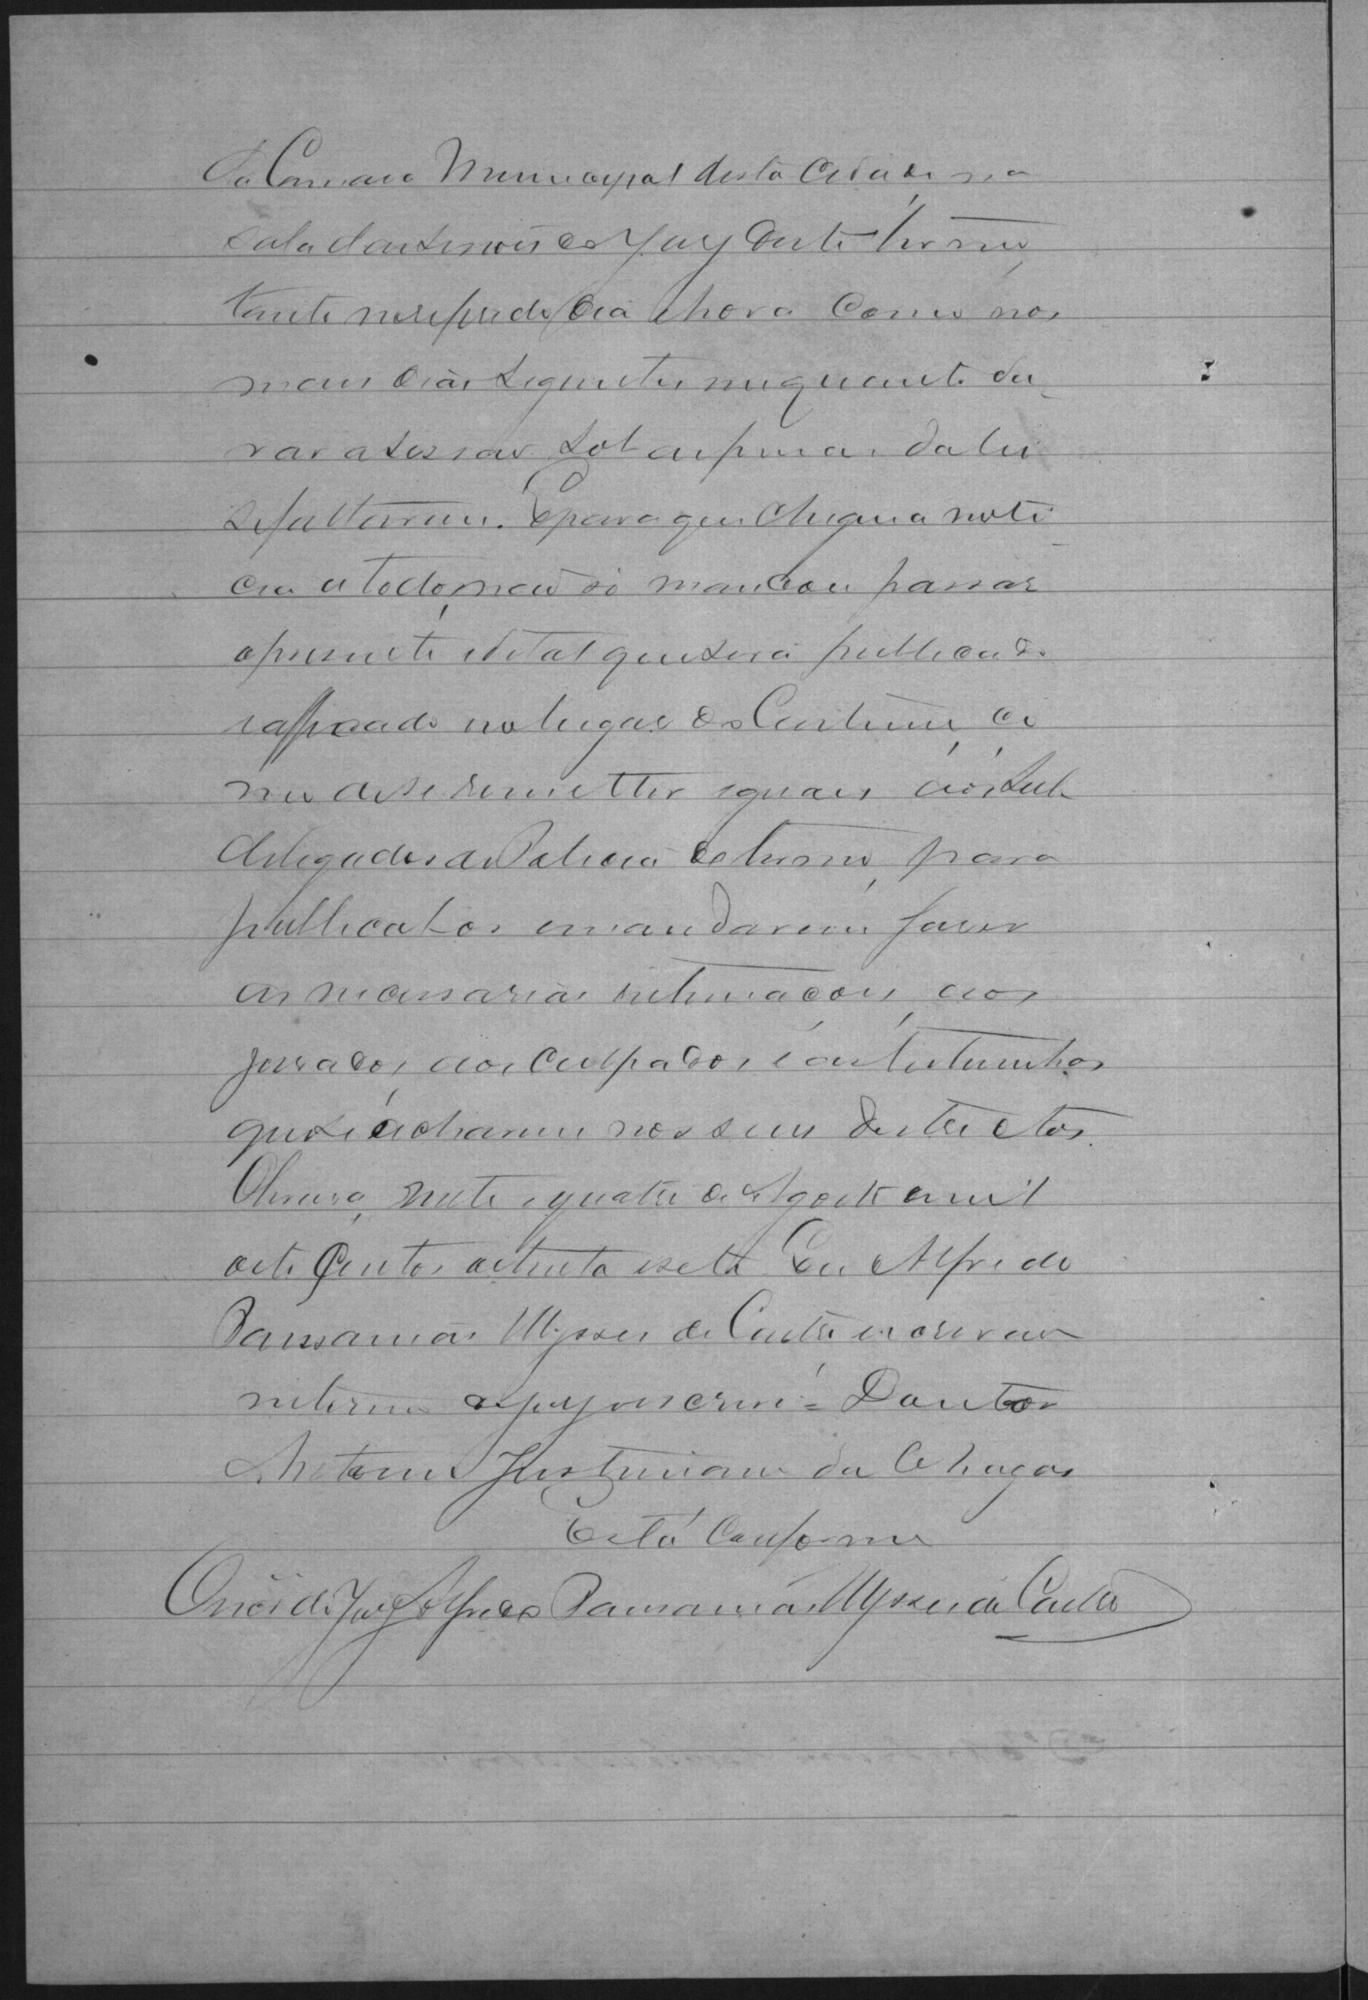 da Camara Municipal desta Cidade na
sala das sessões do Jury deste termo
tanto no referido dia e hora como nos
mais dias seguintes em quanto du-
rar a sessão, sob as penas da lei
se faltarem. E para que chegue a noti
cia a todos mandou passar
o presente edital que será publicado
e affixado no lugar do Custume, e
remetter iguaes aos Sub
delegados de Policia do termo, para
publical-os e mandarem fazer
as necessarias intimações aos
jurados, aos culpados e ás testemunhas
que se acharem nos seus destrictos.
vinte e quatro de Agosto de mil
oito centos oitenta e sete Eu Alfredo
Pausanias Ulysses de Castro escrivão
interino do jury o escrevi = Doutor
Antonio Justiniano das Chagas
Está conforme
O Escrivão do Jury Alfredo Pausanias Ulysses de Castro